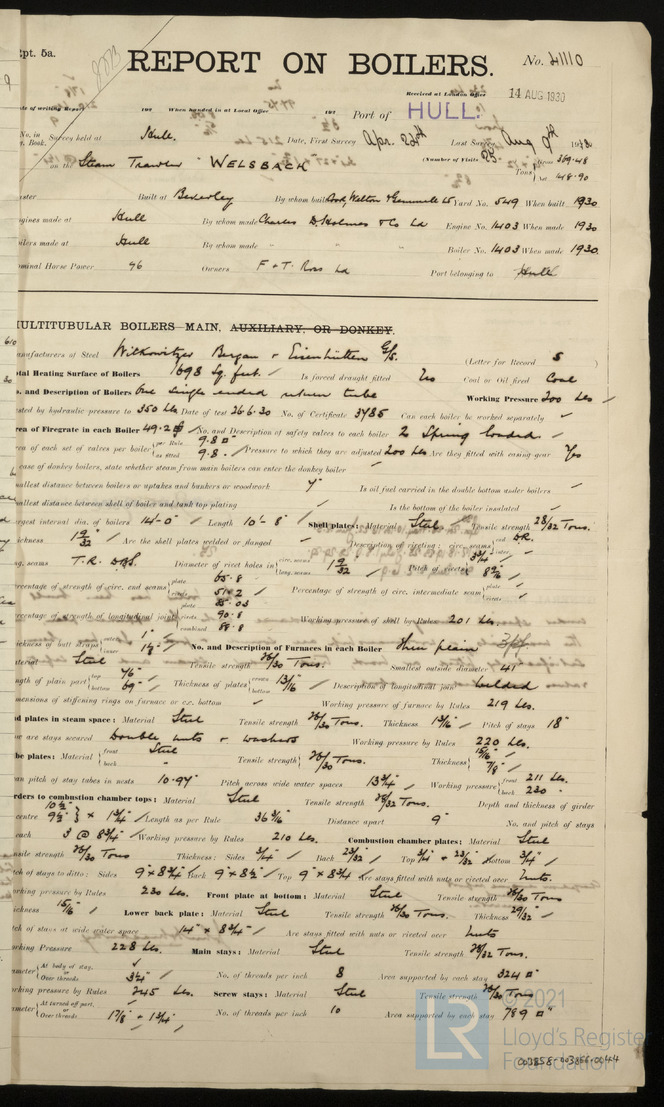 Rpt. 5a.
REPORT ON BOILERS.
No. 41110
Received at London Office
14 AUG 1930
Date of writing Report 193 When handed in at Local Office 193 Port of HULL.
No. in Survey held at Hull. Date, First Survey Apr. 24th Last Survey Aug 9th 1930
Book.
(Number of Visits 25
on the Steam Trawler "WELSBACH" Tons Gross 369.48
Net 148.90
Master Built at Beverley By whom built Cook, Welton & Gemmell Ld Yard No. 549 When built 1930
Engines made at Hull By whom made Charles D. Holmes & Co Ld Engine No. 1403 When made 1930
Boilers made at Hull By whom made " " " Boiler No. 1403 When made 1930.
Nominal Horse Power 96 Owners F & T. Ross Ld Port belonging to Hull
MULTITUBULAR BOILERS MAIN, AUXILIARY, OR DONKEY.
Manufacturers of Steel Witkowitzer Bergbau & Eisenhütten (Letter for Record S )
Total Heating Surface of Boilers 1698 Sq. feet. Is forced draught fitted No Coal or Oil fired Coal
No. and Description of Boilers One single ended return tube Working Pressure 200 Lbs
Tested by hydraulic pressure to 350 Lbs Date of test 26.6.30 No. of Certificate 3785 Can each boiler be worked separately
Area of Firegrate in each Boiler 49.2 No. and Description of safety valves to each boiler 2 Spring loaded.
Area of each set of valves per boiler per Rule 9.8
as fitted 9.8 Pressure to which they are adjusted 200 Lbs Are they fitted with easing gear Yes
In case of donkey boilers, state whether steam from main boilers can enter the donkey boiler
Smallest distance between boilers or uptakes and bunkers or woodwork 9" Is oil fuel carried in the double bottom under boilers
Smallest distance between shell of boiler and tank top plating Is the bottom of the boiler insulated
Largest internal dia. of boilers 14'-0" Length 10'-8" Shell plates: Material Steel Tensile strength 28/32 Tons.
Thickness 1 9/32 Are the shell plates welded or flanged Description of riveting: circ. seams end DR.
inter.
long. seams T.R. DBS. Diameter of rivet holes in circ. seams
long. seams 1 9/32 Pitch of rivets 3 3/4
8 9/16
Percentage of strength of circ. end seams plate 65.8
rivets 51.2 Percentage of strength of circ. intermediate seam plate
rivets
Percentage of strength of longitudinal joint plate 85.03
rivets 90.8
combined 88.8 Working pressure of shell by Rules 201 Lbs.
Thickness of butt straps outer 1"
inner 1 1/8" No. and Description of Furnaces in each Boiler Three plain
Material Steel Tensile strength 26/30 Tons. Smallest outside diameter 41
Length of plain part top 76"
bottom 69" Thickness of plates crown
bottom 13/16" Description of longitudinal join welded
Dimensions of stiffening rings on furnace or c.c. bottom Working pressure of furnace by Rules 219 Lbs.
End plates in steam space: Material Steel Tensile strength 26/30 Tons. Thickness 1 3/16 Pitch of stays 18"
How are stays secured Double nuts & washers Working pressure by Rules 220 Lbs.
Tube plates: Material front Steel
back " Tensile strength 26/30 Tons. Thickness 15/16
7/8
Mean pitch of stay tubes in nests 10.97" Pitch across wide water spaces 13 3/4" Working pressure front 211 Lbs.
back 230
Girders to combustion chamber tops: Material Steel Tensile strength 28/32 Tons. Depth and thickness of girder
centre 10 1/2"
9 1/2" } × 1 3/4" Length as per Rule 36 9/16 Distance apart 9" No. and pitch of stays
each 3 @ 8 3/4" Working pressure by Rules 210 Lbs. Combustion chamber plates: Material Steel
Tensile strength 26/30 Tons Thickness: Sides 3/4" Back 23/32" Top 3/4" & 23/32 Bottom 3/4"
Pitch of stays to ditto: Sides 9" × 8 3/4" Back 9" × 8 1/2" Top 9" × 8 3/4 Are stays fitted with nuts or riveted over Nuts.
Working pressure by Rules 230 Lbs. Front plate at bottom: Material Steel Tensile strength 26/30 Tons
Thickness 15/16" Lower back plate: Material Steel Tensile strength 26/30 Tons. Thickness 29/32
Pitch of stays at wide water space 14" × 8 3/4" Are stays fitted with nuts or riveted over Nuts
Working Pressure 228 Lbs. Main stays: Material Steel Tensile strength 28/32 Tons.
Diameter At body of stay,
or
Over threads 3 1/4" No. of threads per inch 8 Area supported by each stay 324
Working pressure by Rules 245 Lbs. Screw stays: Material Steel Tensile strength 26/30 Tons
Diameter At turned off part,
or
Over threads 1 7/8" & 1 3/4" No. of threads per inch 10 Area supported by each stay 78.9
© 2021
LR
Lloyd's Register
Foundation
003858-003866-0044